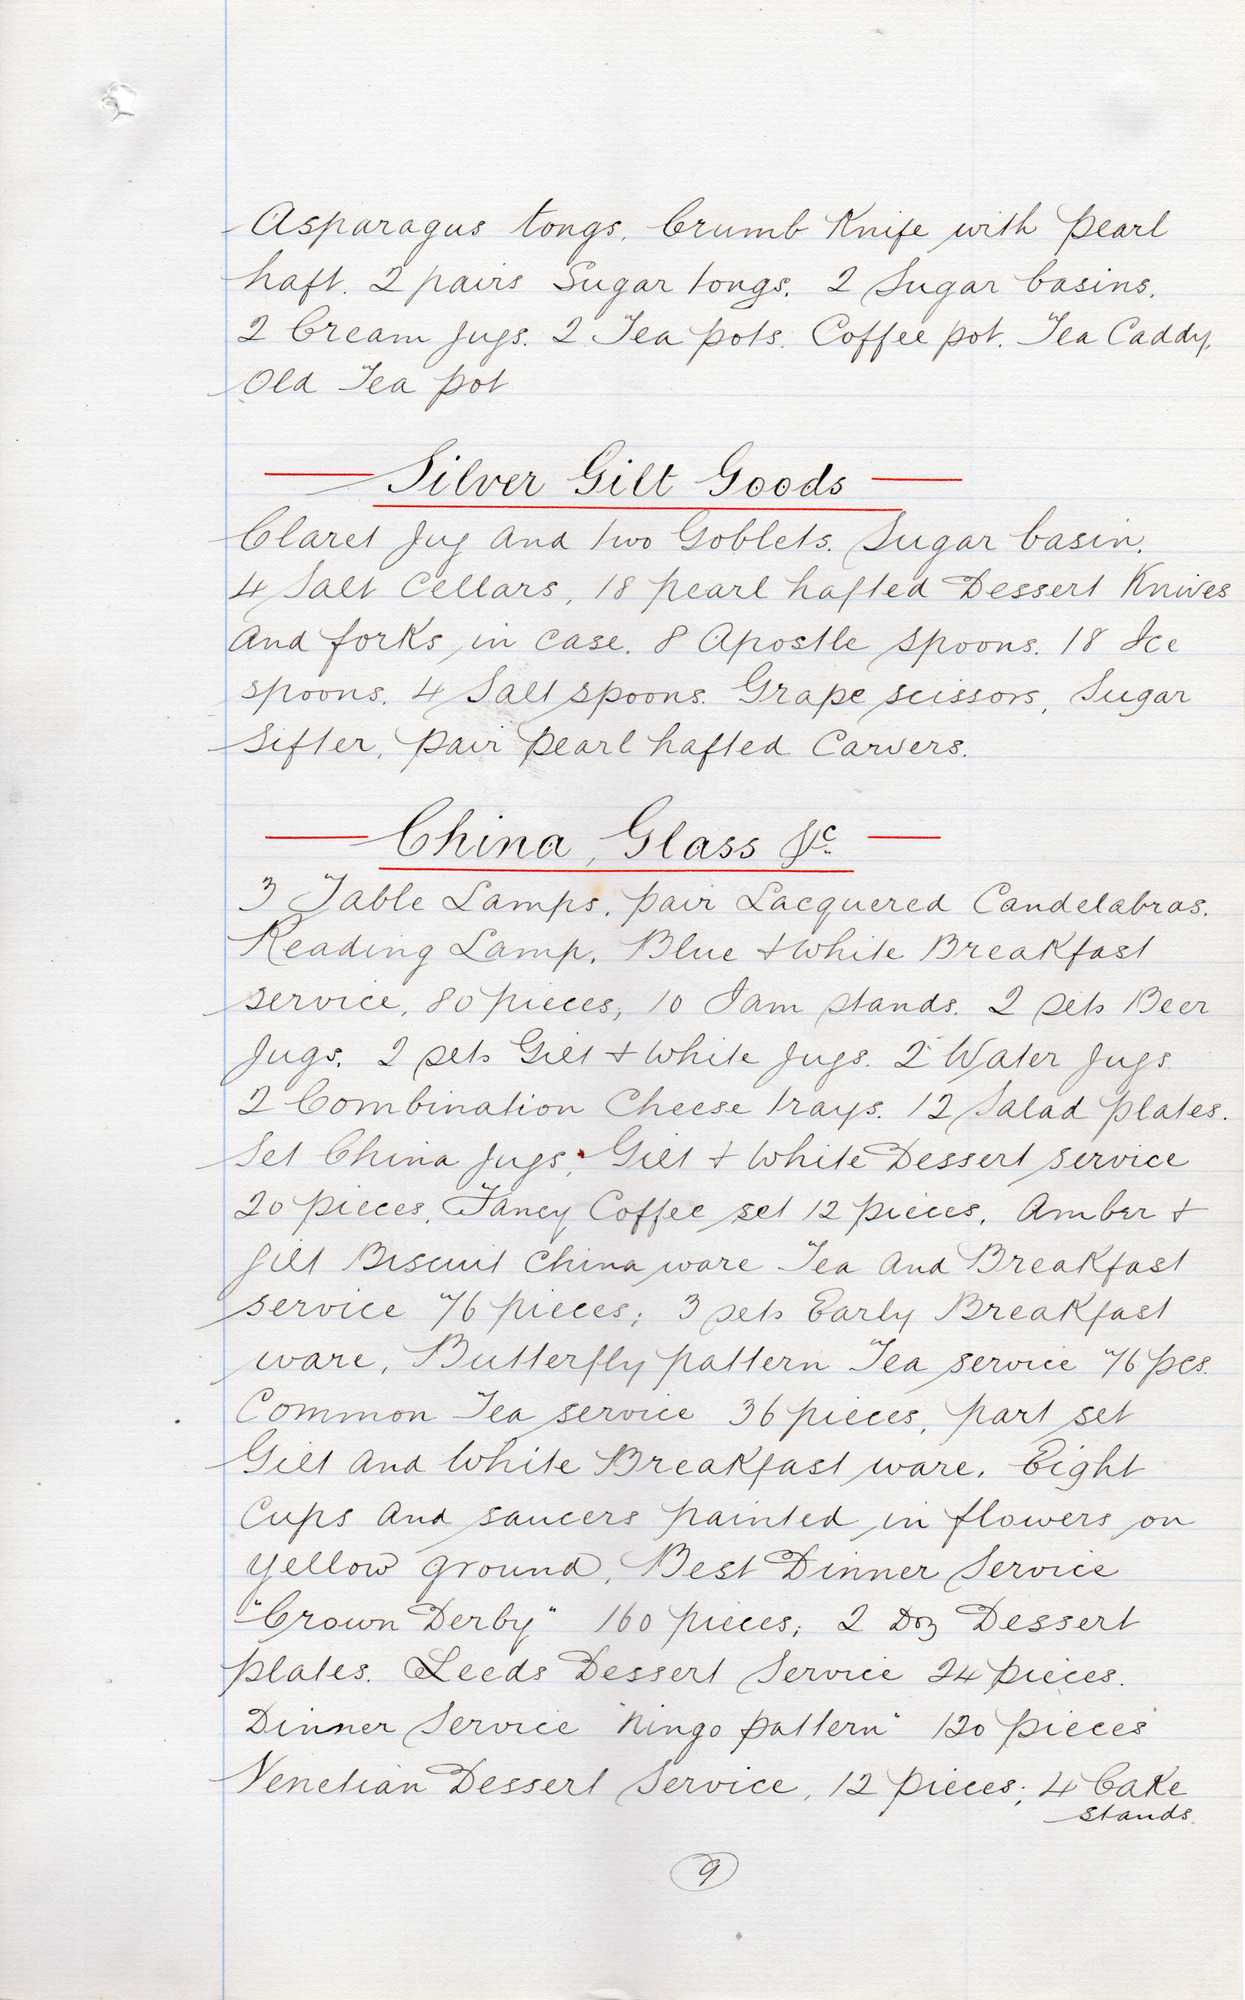 Asparagus tongs. Crumb Knife with pearl
haft. 2 pairs Sugar tongs. 2 Sugar basins.
2 Cream Jugs. 2 Tea pots. Coffee pot. Tea Caddy,
Old Tea pot
Silver Gilt Goods
Claret Jug and two Goblets. Sugar basin.
4 Salt Cellars, 18 pearl hafted Dessert Knives
and forks in case. 8 Apostle spoons. 18 Ice
spoons. 4 Salt spoons. Grape scissors, Sugar
Sifter, pair pearl hafted Carvers.
China, Glass &c
3 Table Lamps, pair Lacquered Candelabras.
Reading Lamp. Blue & White Breakfast
service, 80 pieces; 10 Jam stands. 2 sets Beer
Jugs. 2 sets Gilt & White Jugs. 2 Water Jugs
2 Combination Cheese trays. 12 Salad plates.
Set China Jugs; Gilt & White Dessert service
20 pieces, Fancy Coffee set 12 pieces. Amber &
gilt Biscuit China ware Tea and Breakfast
service 76 pieces; 3 sets Early Breakfast
ware, Butterfly pattern Tea service 76 pcs.
Common Tea service 36 pieces, part set
Gilt and White Breakfast ware. Eight
Cups and saucers painted in flowers on
yellow ground, Best Dinner Service
"Crown Derby" 160 pieces; 2 Doz Dessert
plates. Leeds Dessert Service 24 pieces.
Dinner Service "Ningo pattern" 120 pieces
Venetian Dessert Service, 12 pieces; 4 Cake
stands.
9